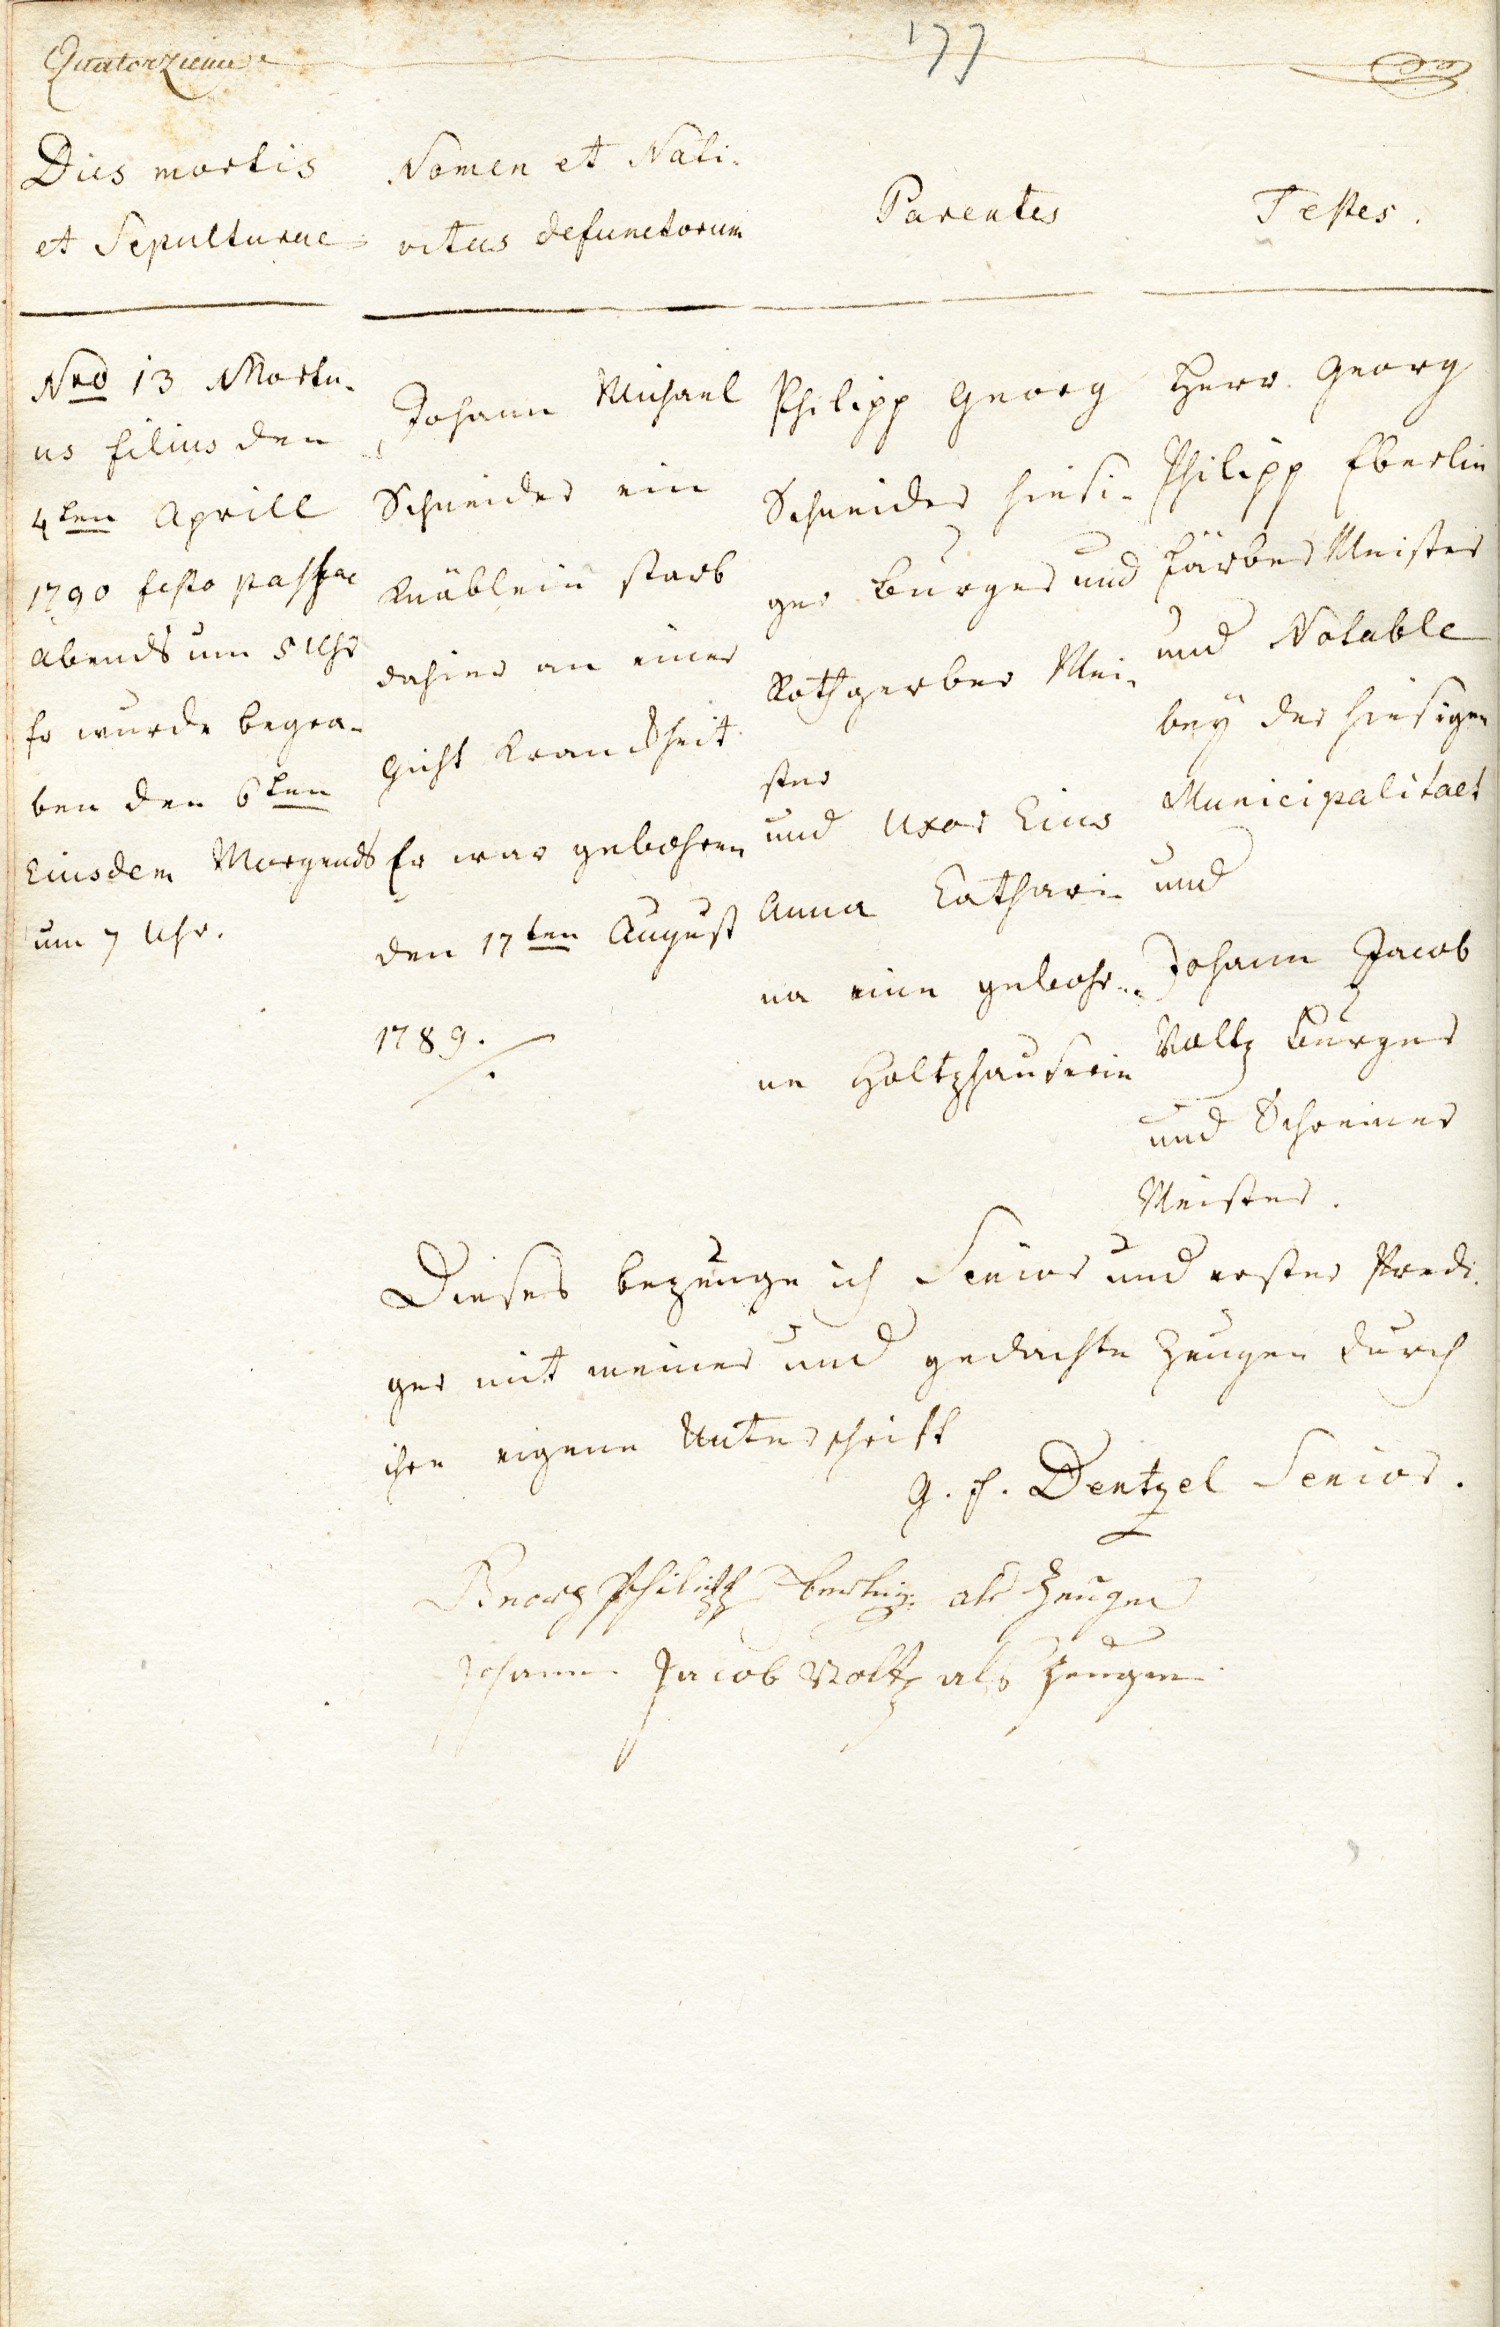 Quatorzieme
177
Dies mortis
et Sepulturae
Nomen et Nati-
vitas defunctorum
Parentes
Testes.
Nro 13 Mortu-
us filius den
4ten Aprill
1790 festo paschae
abends um 5 Uhr
Er wurde begra-
ben den 6ten
Eiusdem Morgends
um 7 Uhr.
Johann Michael
Schneider ein
Knäblein starb
dahier an einer
Gicht Kranckheit
Er war gebohren
den 17ten August
1789.
Philipp Georg
Schneider hiesi-
ger Burger und
Rothgerber Mei-
ster
und Uxor Eius
Anna Cathari-
na eine gebohr-
ne Holtzhauserin
Herr Georg
Philipp Eberlin
Färber Meister
und Notable
bey der hiesigen
Municipalitaet
und
Johann Jacob
Voltz Burger
und Schreiner
Meister.
Dieses bezeuge ich Senior und erster Predi-
ger mit meiner und gedachte Zeugen durch
ihre eigene Unterschrift
G. F. Dentzel Senior.
Georg Philipp Eberlin als Zeugen
Johann Jacob Voltz als Zeugen